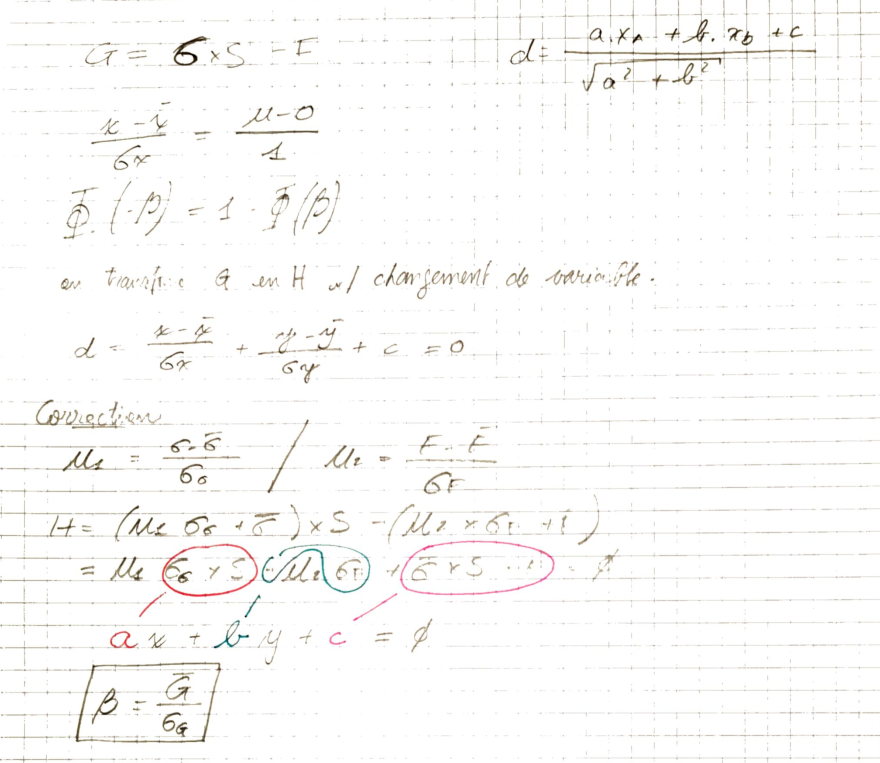 G = σ × S - F
d = (a.x_A + b.x_b + c) / √(a² + b²)
(x - x̄) / σx = (μ - 0) / 1
Φ(-β) = 1 - Φ(β)
on G en H w/ changement de variable.
d = (x - x̄) / σx + (y - ȳ) / σy + c = 0
Correction
μ₁ = (σ - σ̄) / σσ / μ₂ = (F - F̄) / σF
H = (μ₁ σσ + σ̄) × S - (μ₂ × σF + F̄)
= μ₁ σσ × S - μ₂ σF + σ̄ × S - F̄ = ∅
a x + b y + c = ∅
β = Ḡ / σG